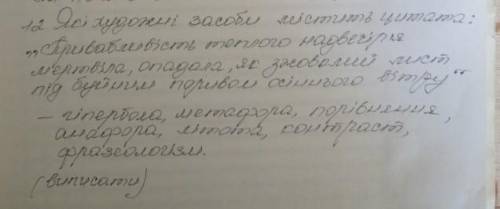 12 Які художні засоби містить цитата:
„Привабливість теплого надвечір'я
мертвіла, опадала, як зжовклий лист
під буйним поривом осіннього вітру"
- гіпербола, метафора, порівняння,
анафора, літота, контраст,
фразеологізм.
(виписати)